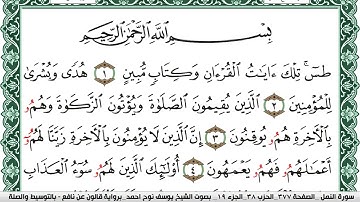 بِسْمِ اللَّهِ الرَّحْمَٰنِ الرَّحِيمِ
طسٓ تِلْكَ ءَايَٰتُ الْقُرْءَانِ وَكِتَابٖ مُّبِينٍ ١ هُدىٗ وَبُشْرَىٰ
لِلْمُؤْمِنِينَ ٢ الَّذِينَ يُقِيمُونَ الصَّلَوٰةَ وَيُؤْتُونَ الزَّكَوٰةَ وَهُمُۥ
بِالَاخِرَةِ هُمُۥ يُوقِنُونَ ٣ إِنَّ الَّذِينَ لَا يُؤْمِنُونَ بِالَاخِرَةِ زَيَّنَّا لَهُمُۥٓ
أَعْمَٰلَهُمُۥ فَهُمُۥ يَعْمَهُونَ ٤ أُوْلَٰٓئِكَ الَّذِينَ لَهُمُۥ سُوٓءُ الْعَذَابِ
سورة النمل . الصفحة ٣٧٧ الحزب ٣٨ الجزء ١٩ بصوت الشيخ يوسف نوح احمد . برواية قالون عن نافع - بالتوسيط والصلة